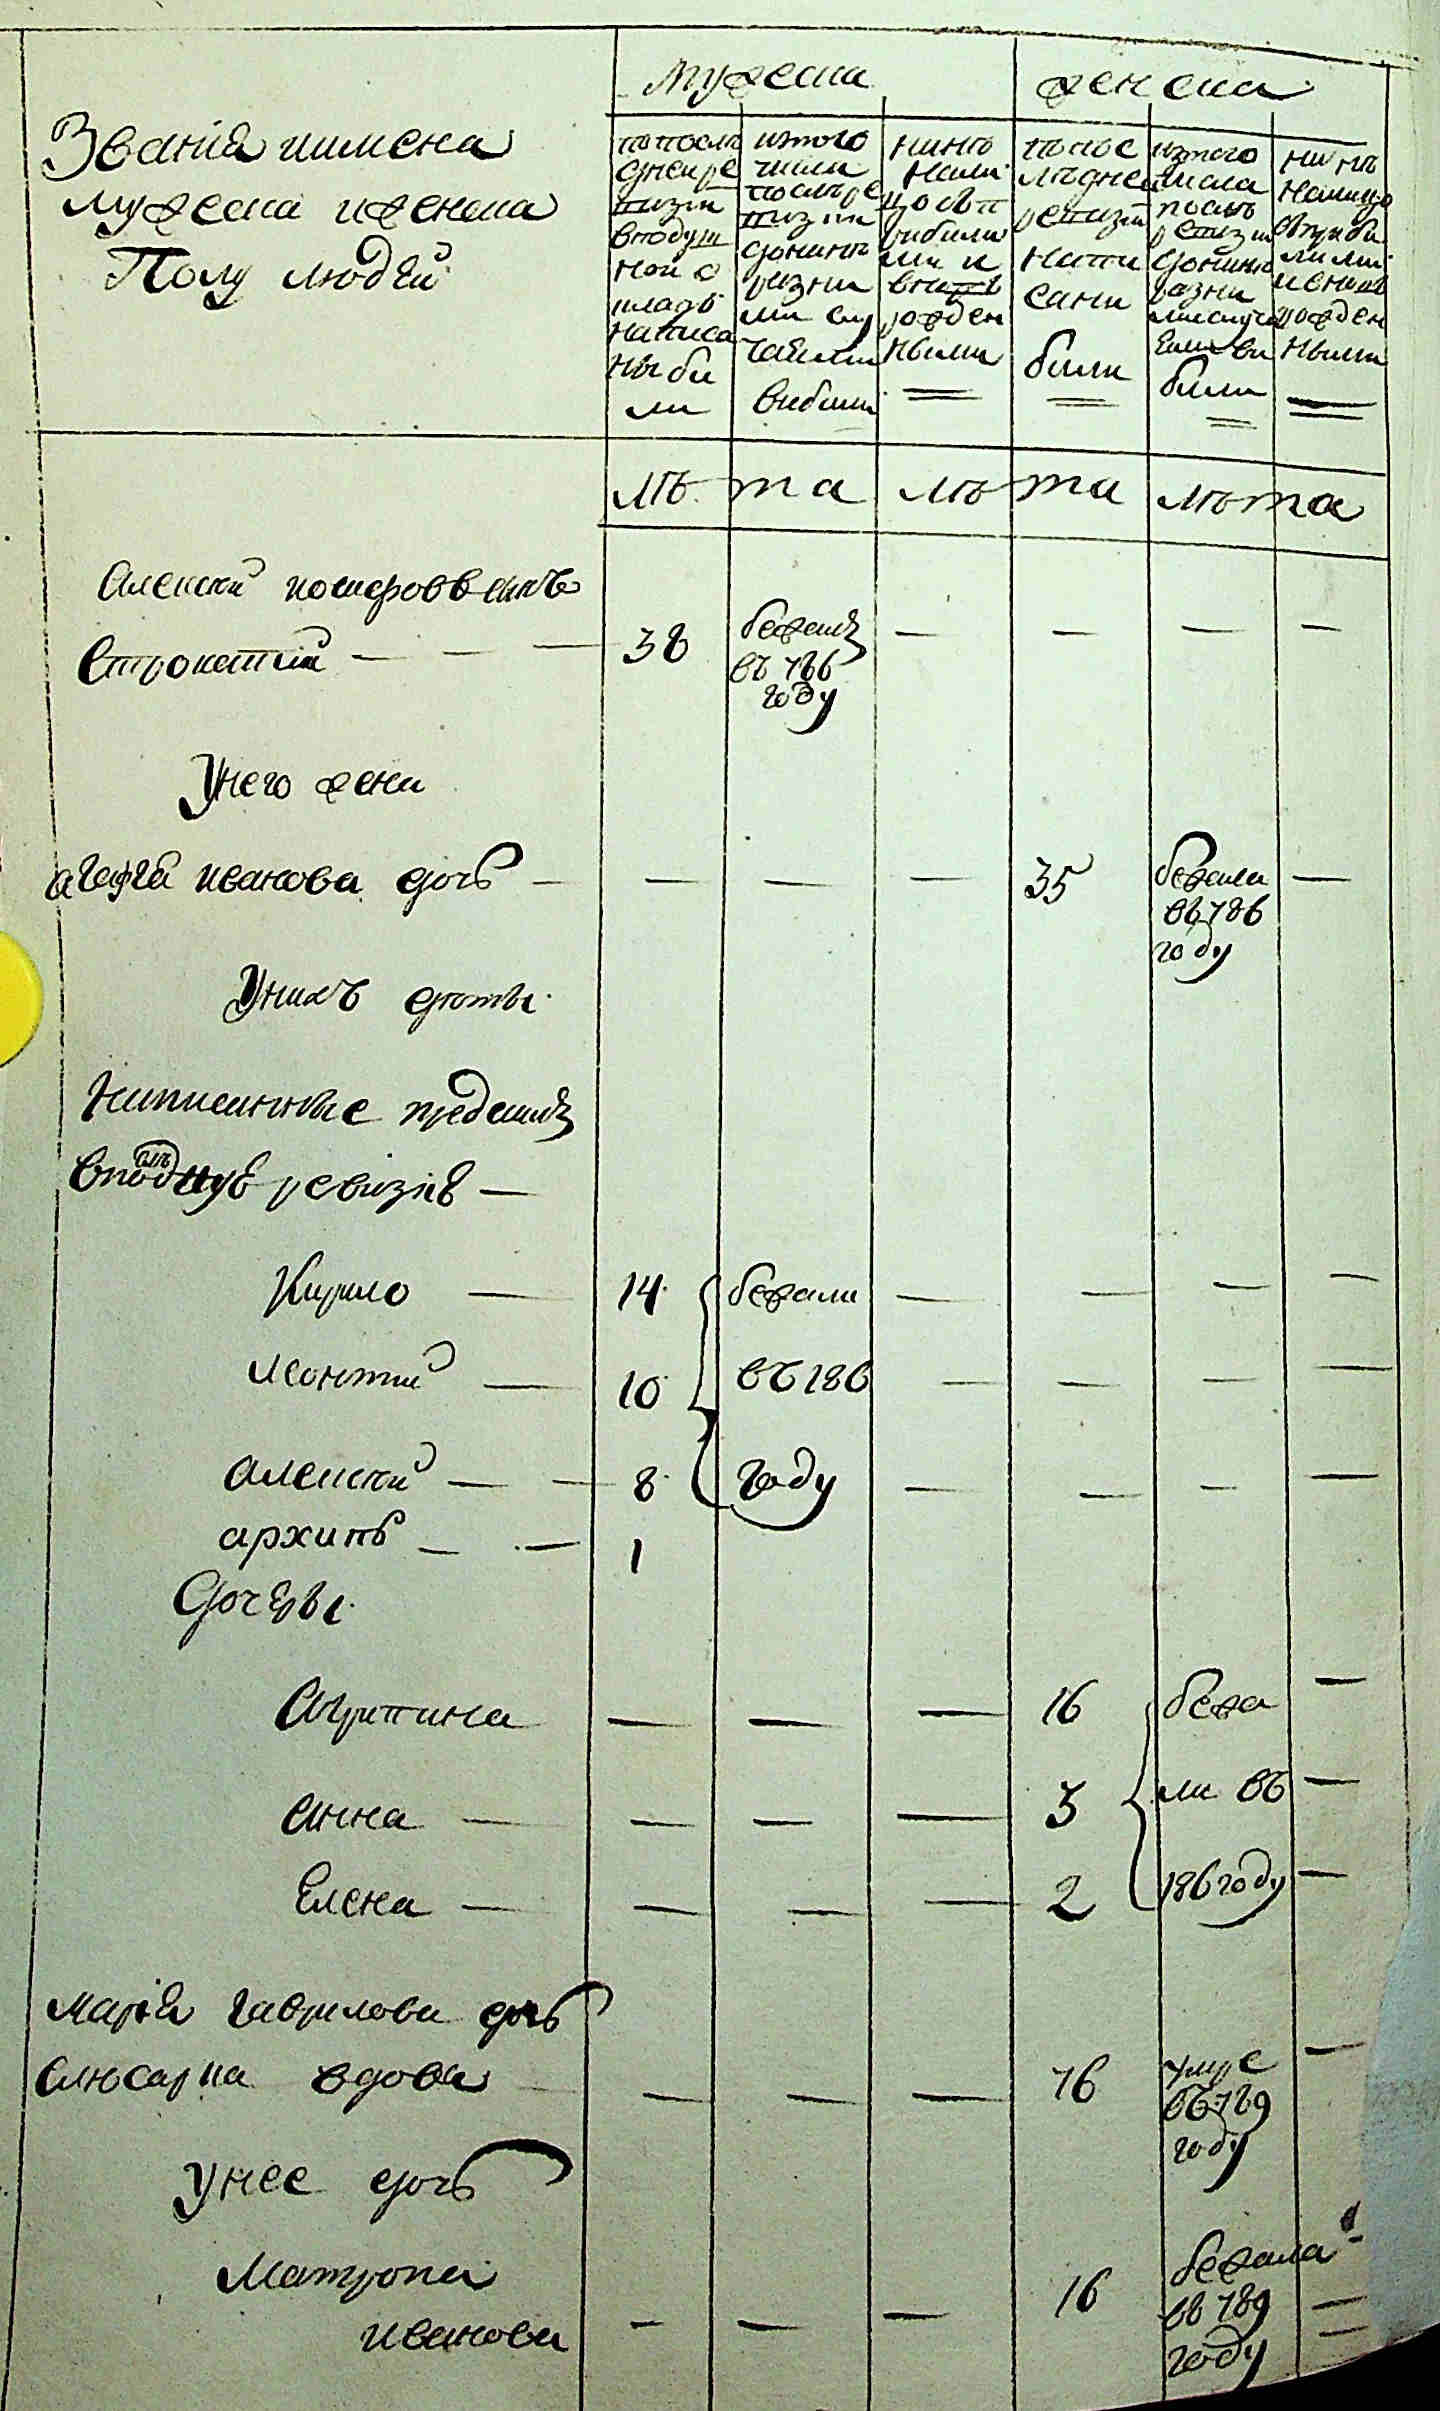 Званія иимена
мужеска иженска
Полу людей
мужеска
женска
попослѣ
дней ре
визіи
вподуш
ной о
кладъ
написа
ны бы
ли
изтого
числа
послѣре
визіи
донинѣ
разны
ми слу
чаями
выбыли
нинѣ
нали
цо съп
рибылы
ми и
вновь
рожден
ными
попос
лѣдней
ревизіи
напи
саны
были
изтого
числа
послѣ
ревизіи
донинѣ
разны
мислуча
ями вы
были
нинѣ
налицо
сприбы
лыми
рожден
ными
лѣта лѣта лѣта
Алексѣй
Строкатий — — — 38 бежалъ — — — —
въ 786
году
Унего жена
агафія иванова дочь — — — — 35 бежала —
въ 786
году
Унихъ дѣти
написанные предсимъ
вподушнуѣ ревизіѣ —
Кирило — 14 бежали — — — —
Леонтий — 10 въ 186 — — — —
алексѣй — — 8 году — — — —
архипъ — — 1
Дочеры
Агрипина — — — 16 бежа —
анна — — — — 3 ли въ —
Елена — — — — 2 186 году —
Марія гаврилова дочь
слюсарка вдова — — — — 76 умре —
въ 789
году
Унее дочь
Матрона
иванова — — — 16 бежала —
въ 789 —
году —